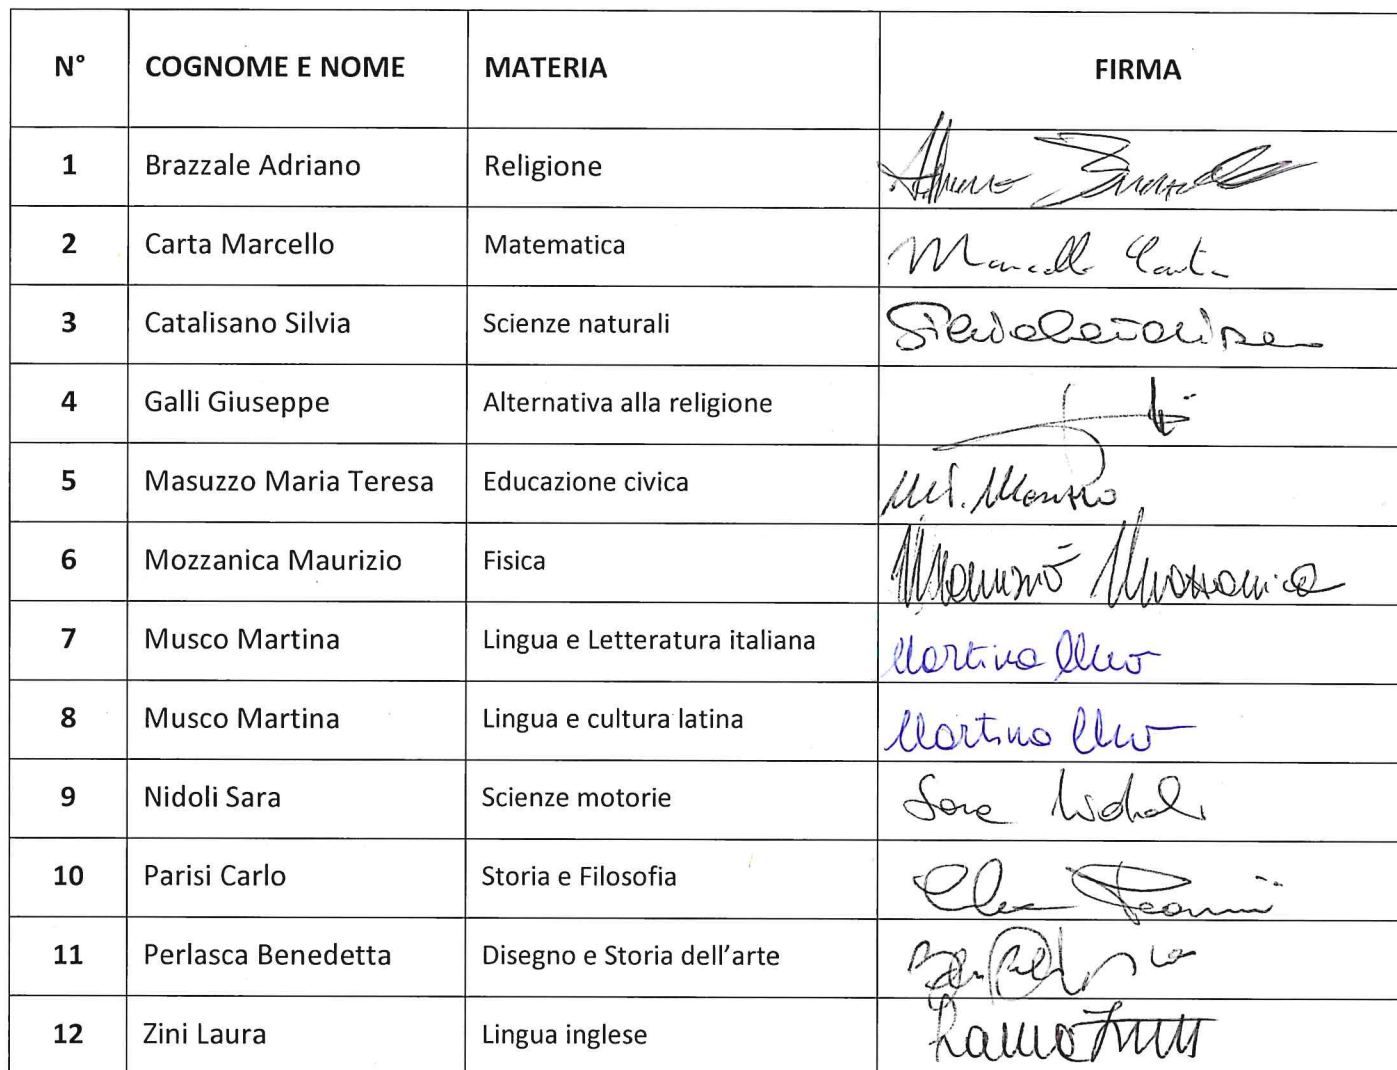 N° COGNOME E NOME MATERIA FIRMA
1 Brazzale Adriano Religione
2 Carta Marcello Matematica Marcello Carta
3 Catalisano Silvia Scienze naturali
4 Galli Giuseppe Alternativa alla religione
5 Masuzzo Maria Teresa Educazione civica
6 Mozzanica Maurizio Fisica Maurizio Mozzanica
7 Musco Martina Lingua e Letteratura italiana Martina
8 Musco Martina Lingua e cultura latina Martina
9 Nidoli Sara Scienze motorie Sara Nidoli
10 Parisi Carlo Storia e Filosofia
11 Perlasca Benedetta Disegno e Storia dell'arte
12 Zini Laura Lingua inglese Laura Zini